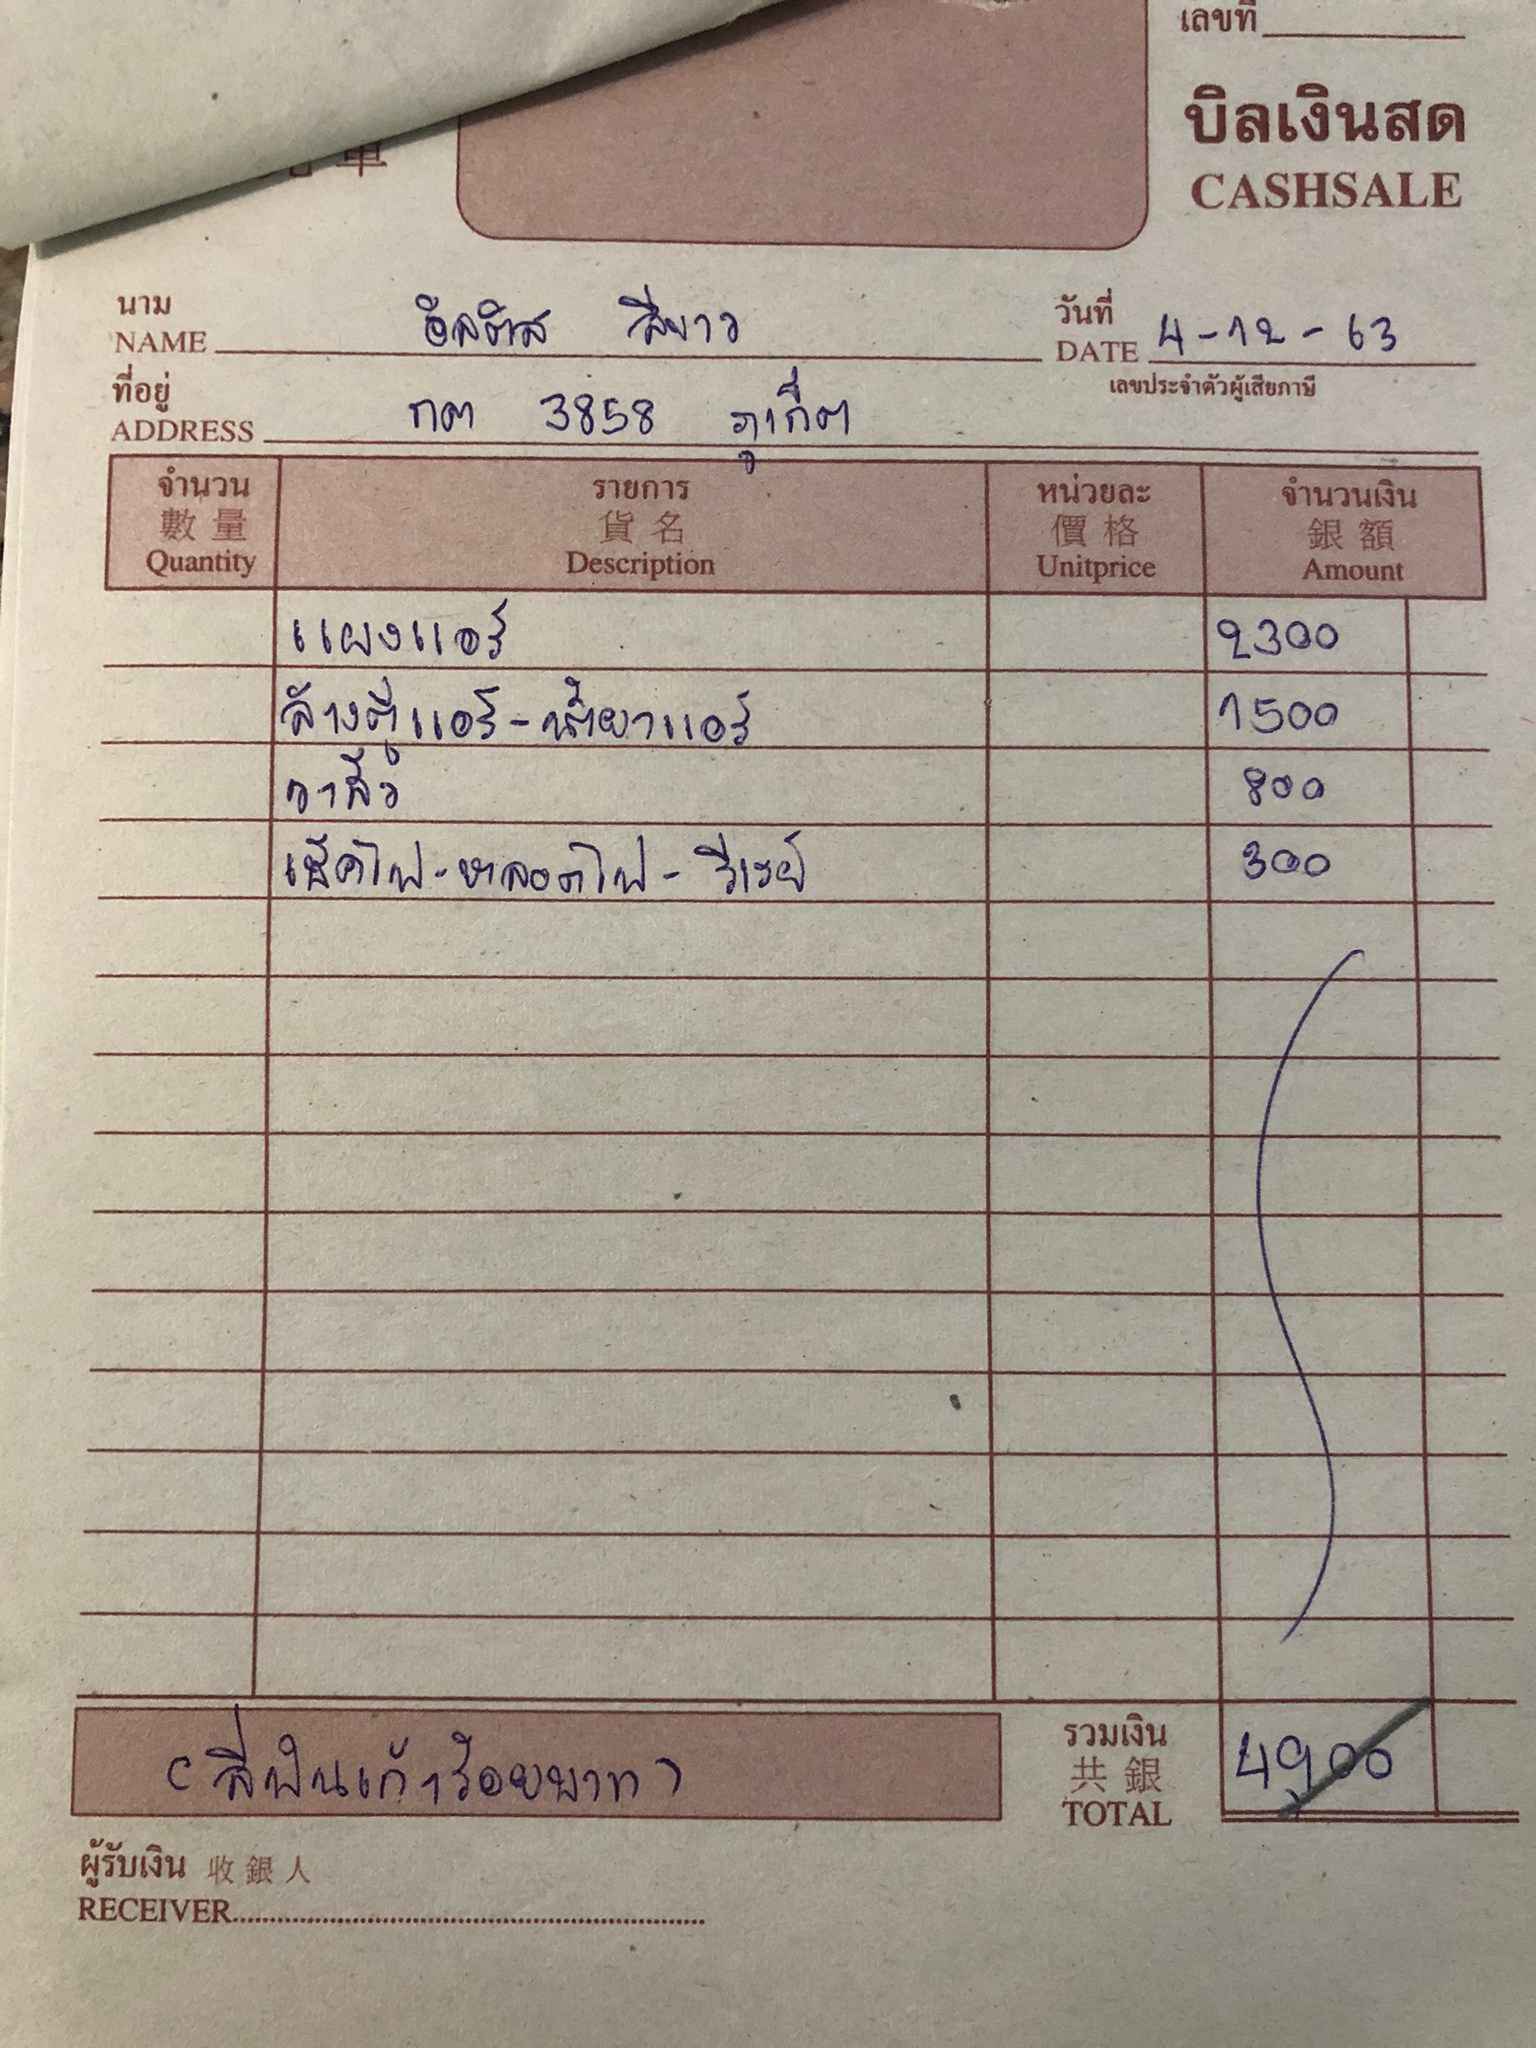 เลขที่
บิลเงินสด
CASHSALE
單
นาม
NAME อัลติส สีขาว
วันที่
DATE 4-12-63
เลขประจำตัวผู้เสียภาษี
ที่อยู่
ADDRESS กต 3858 ภูเก็ต
จำนวน รายการ หน่วยละ จำนวนเงิน
數量 貨名 價格 銀額
Quantity Description Unitprice Amount
แผงแอร์ 2300
ล้างตู้แอร์-น้ำยาแอร์ 1500
วาล์ว 800
เช็คไฟ-หลอดไฟ-รีเรย์ 300
(สี่พันเก้าร้อยบาท)
รวมเงิน
共銀
TOTAL 4900
ผู้รับเงิน 收銀人
RECEIVER